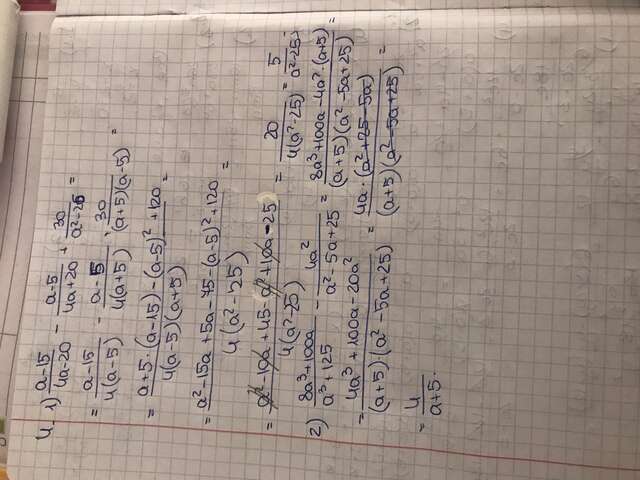 4. 1) (a-15)/(4a-20) - (a-5)/(4a+20) + 30/(a²-25) =
= (a-15)/(4(a-5)) - (a-5)/(4(a+5)) + 30/((a+5)(a-5)) =
= (a+5·(a-15)-(a-5)²+120)/(4(a-5)(a+5)) =
= (a²-15a+5a-75-(a-5)²+120)/(4(a²-25)) =
= (a²-10a+45-a²+10a-25)/(4(a²-25)) = 20/(4(a²-25)) = 5/(a²-25)
2) (8a³+100a)/(a³+125) - 4a²/(a²-5a+25) = (8a³+100a-4a²·(a+5))/((a+5)(a²-5a+25)) =
= (4a³+100a-20a²)/((a+5)·(a²-5a+25)) = (4a·(a²+25-5a))/((a+5)(a²-5a+25)) =
= 4/(a+5).